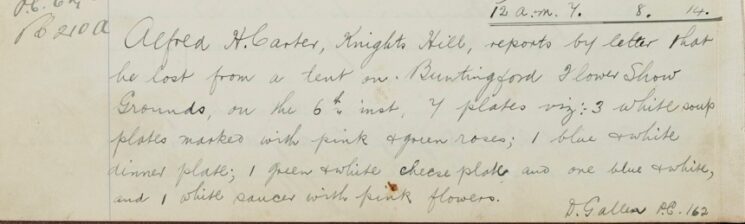 12 a.m. 7. 8. 14.
Pc 210 A
Alfred H. Carter, Knights Hill, reports by letter that
he lost from a tent on Buntingford Flower Show
Grounds, on the 6th inst, 7 plates viz: 3 white soup
plates marked with pink & green roses; 1 blue & white
dinner plate; 1 green & white cheese plate and one blue & white,
and 1 white saucer with pink flowers.
D. Gallen P.C. 162